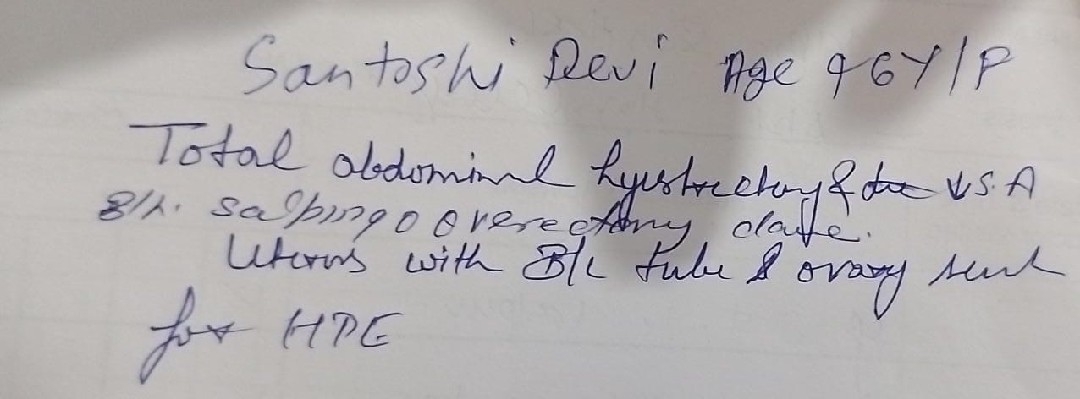 Santoshi Devi Age 46Y/F
Total abdominal hysterectomy & ↓ S.A
B/L. salpingo overectomy done.
Uterus with B/L tube & ovary sent
for HPE